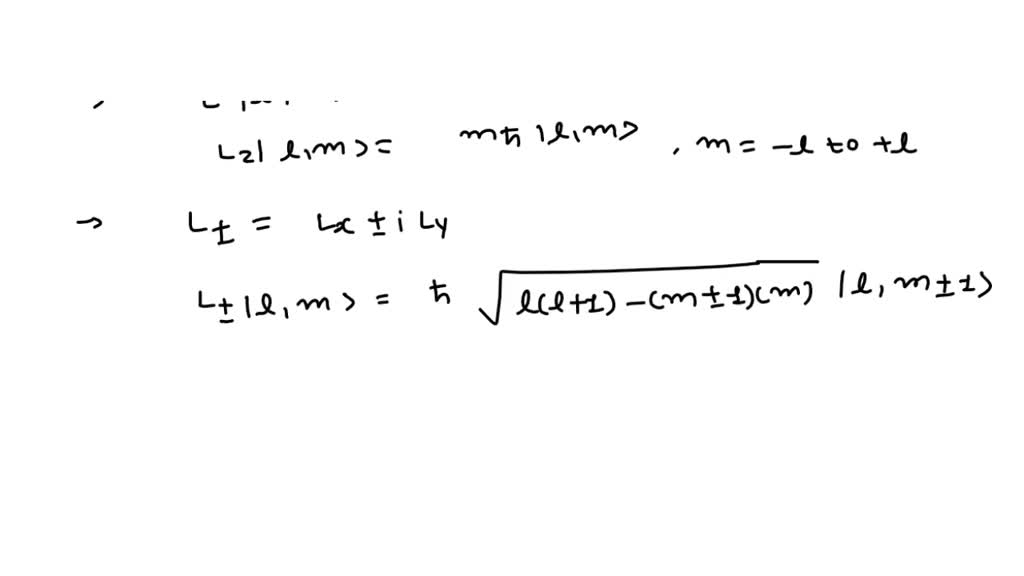 Lz| l,m> = mħ |l,m> , m = -l to +l
→ L± = Lx ± i Ly
L± |l,m> = ħ √(l(l+1) - (m±1)(m)) |l, m±1>